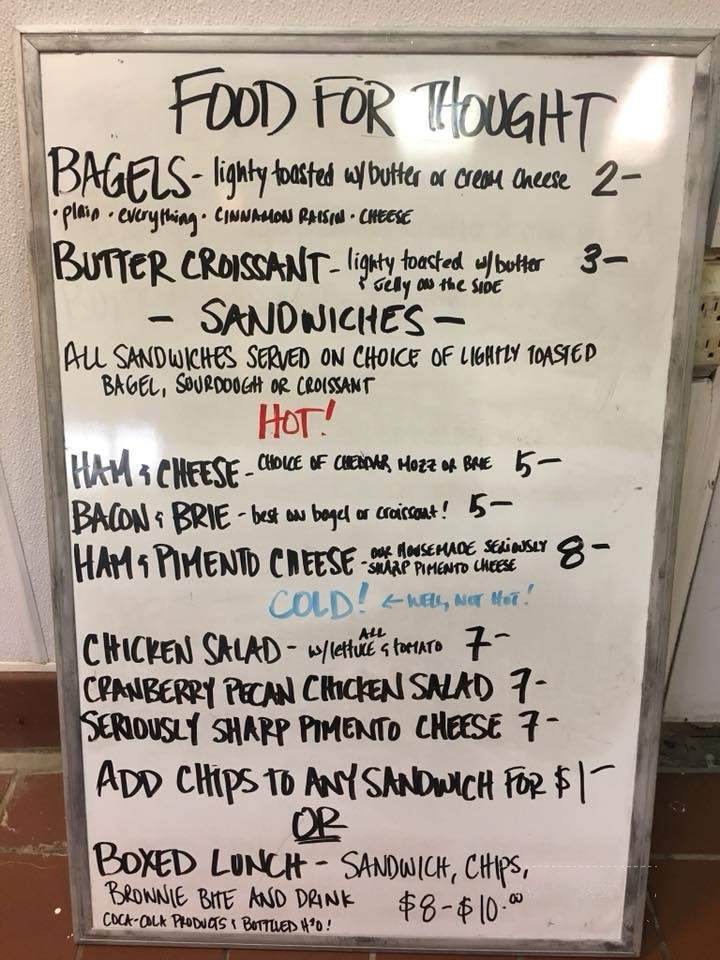 FOOD FOR THOUGHT
BAGELS - lighty toasted w/butter or cream cheese 2-
• plain • everything • CINNAMON RAISIN • CHEESE
BUTTER CROISSANT - lighty toasted w/butter 3-
& Jelly on the SIDE
- SANDWICHES -
ALL SANDWICHES SERVED ON CHOICE OF LIGHTLY TOASTED
BAGEL, SOURDOUGH OR CROISSANT
HOT!
HAM & CHEESE - CHOICE OF CHEDDAR, MOZZ OR BRIE 5-
BACON & BRIE - best on bagel or croissant! 5-
HAM & PIMENTO CHEESE - OUR HOUSEMADE SERIOUSLY 8-
SHARP PIMENTO CHEESE
COLD! ← WELL, NOT HOT!
ALL
CHICKEN SALAD - w/lettuce & tomato 7-
CRANBERRY PECAN CHICKEN SALAD 7-
SERIOUSLY SHARP PIMENTO CHEESE 7-
ADD CHIPS TO ANY SANDWICH FOR $1-
OR
BOXED LUNCH - SANDWICH, CHIPS,
BROWNIE BITE AND DRINK $8-$10.00
COCA-COLA PRODUCTS & BOTTLED H2O!